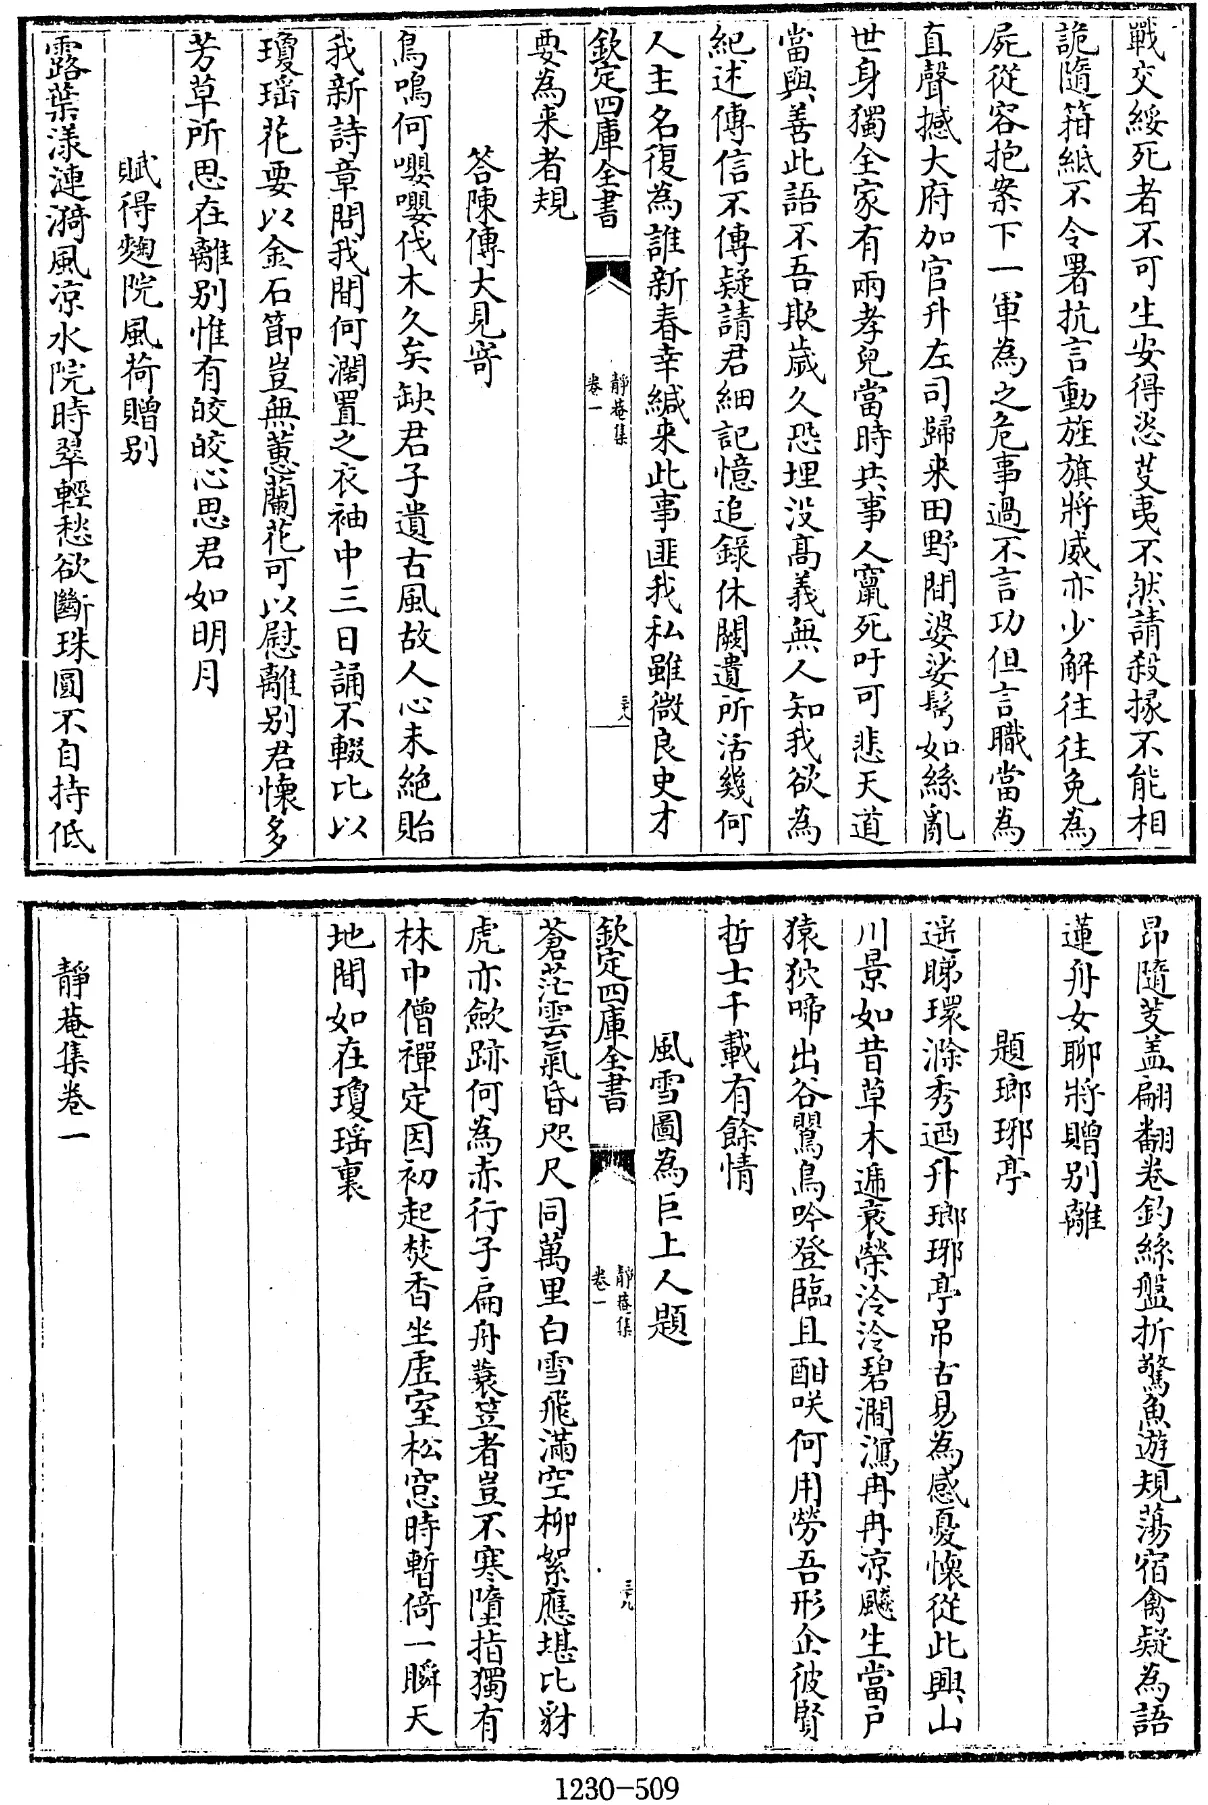 戰交綏死者不可生安得恣芟夷不然請殺掾不能相
詭隨箝紙不令署抗言動旌旗將威亦少解往往免為
屍從容抱案下一軍為之危事過不言功但言職當為
直聲撼大府加官升左司歸来田野間婆娑鬂如絲亂
世身獨全家有兩孝兒當時共事人竄死吁可悲天道
當與善此語不吾欺歲久恐埋没髙義無人知我欲為
紀述傳信不傳疑請君細記憶追錄休闕遺所活幾何
人主名復為誰新春幸緘来此事匪我私雖微良史才
欽定四庫全書
靜菴集
卷一
三十八
要為来者規
答陳傅大見寄
鳥鳴何嚶嚶伐木久矣缺君子遺古風故人心未絶貽
我新詩章問我間何濶置之衣袖中三日誦不輟比以
瓊瑶花要以金石節豈無蕙蘭花可以慰離别君懷多
芳草所思在離别惟有皎皎心思君如明月
賦得麴院風荷贈别
露葉漾漣漪風凉水院時翠輕愁欲斷珠圓不自持低
昂隨芰盖翩翻卷釣絲盤折驚魚遊規蕩宿禽疑為語
蓮舟女聊將贈别離
題瑯琊亭
遥睇環滁秀迺升瑯琊亭吊古易為感憂懷從此興山
川景如昔草木遞衰榮泠泠碧澗瀉冉冉凉飈生當户
猿狖啼出谷鸎鳥吟登臨且酣咲何用勞吾形企彼賢
哲士千載有餘情
風雪圖為巨上人題
欽定四庫全書
靜菴集
卷一
三十九
蒼茫雲氣昏咫尺同萬里白雪飛滿空柳絮應堪比豺
虎亦歛跡何為赤行子扁舟蓑笠者豈不寒墮指獨有
林中僧禪定因初起焚香坐虚室松窓時暫倚一瞬天
地間如在瓊瑶裏
靜菴集卷一
1230-509